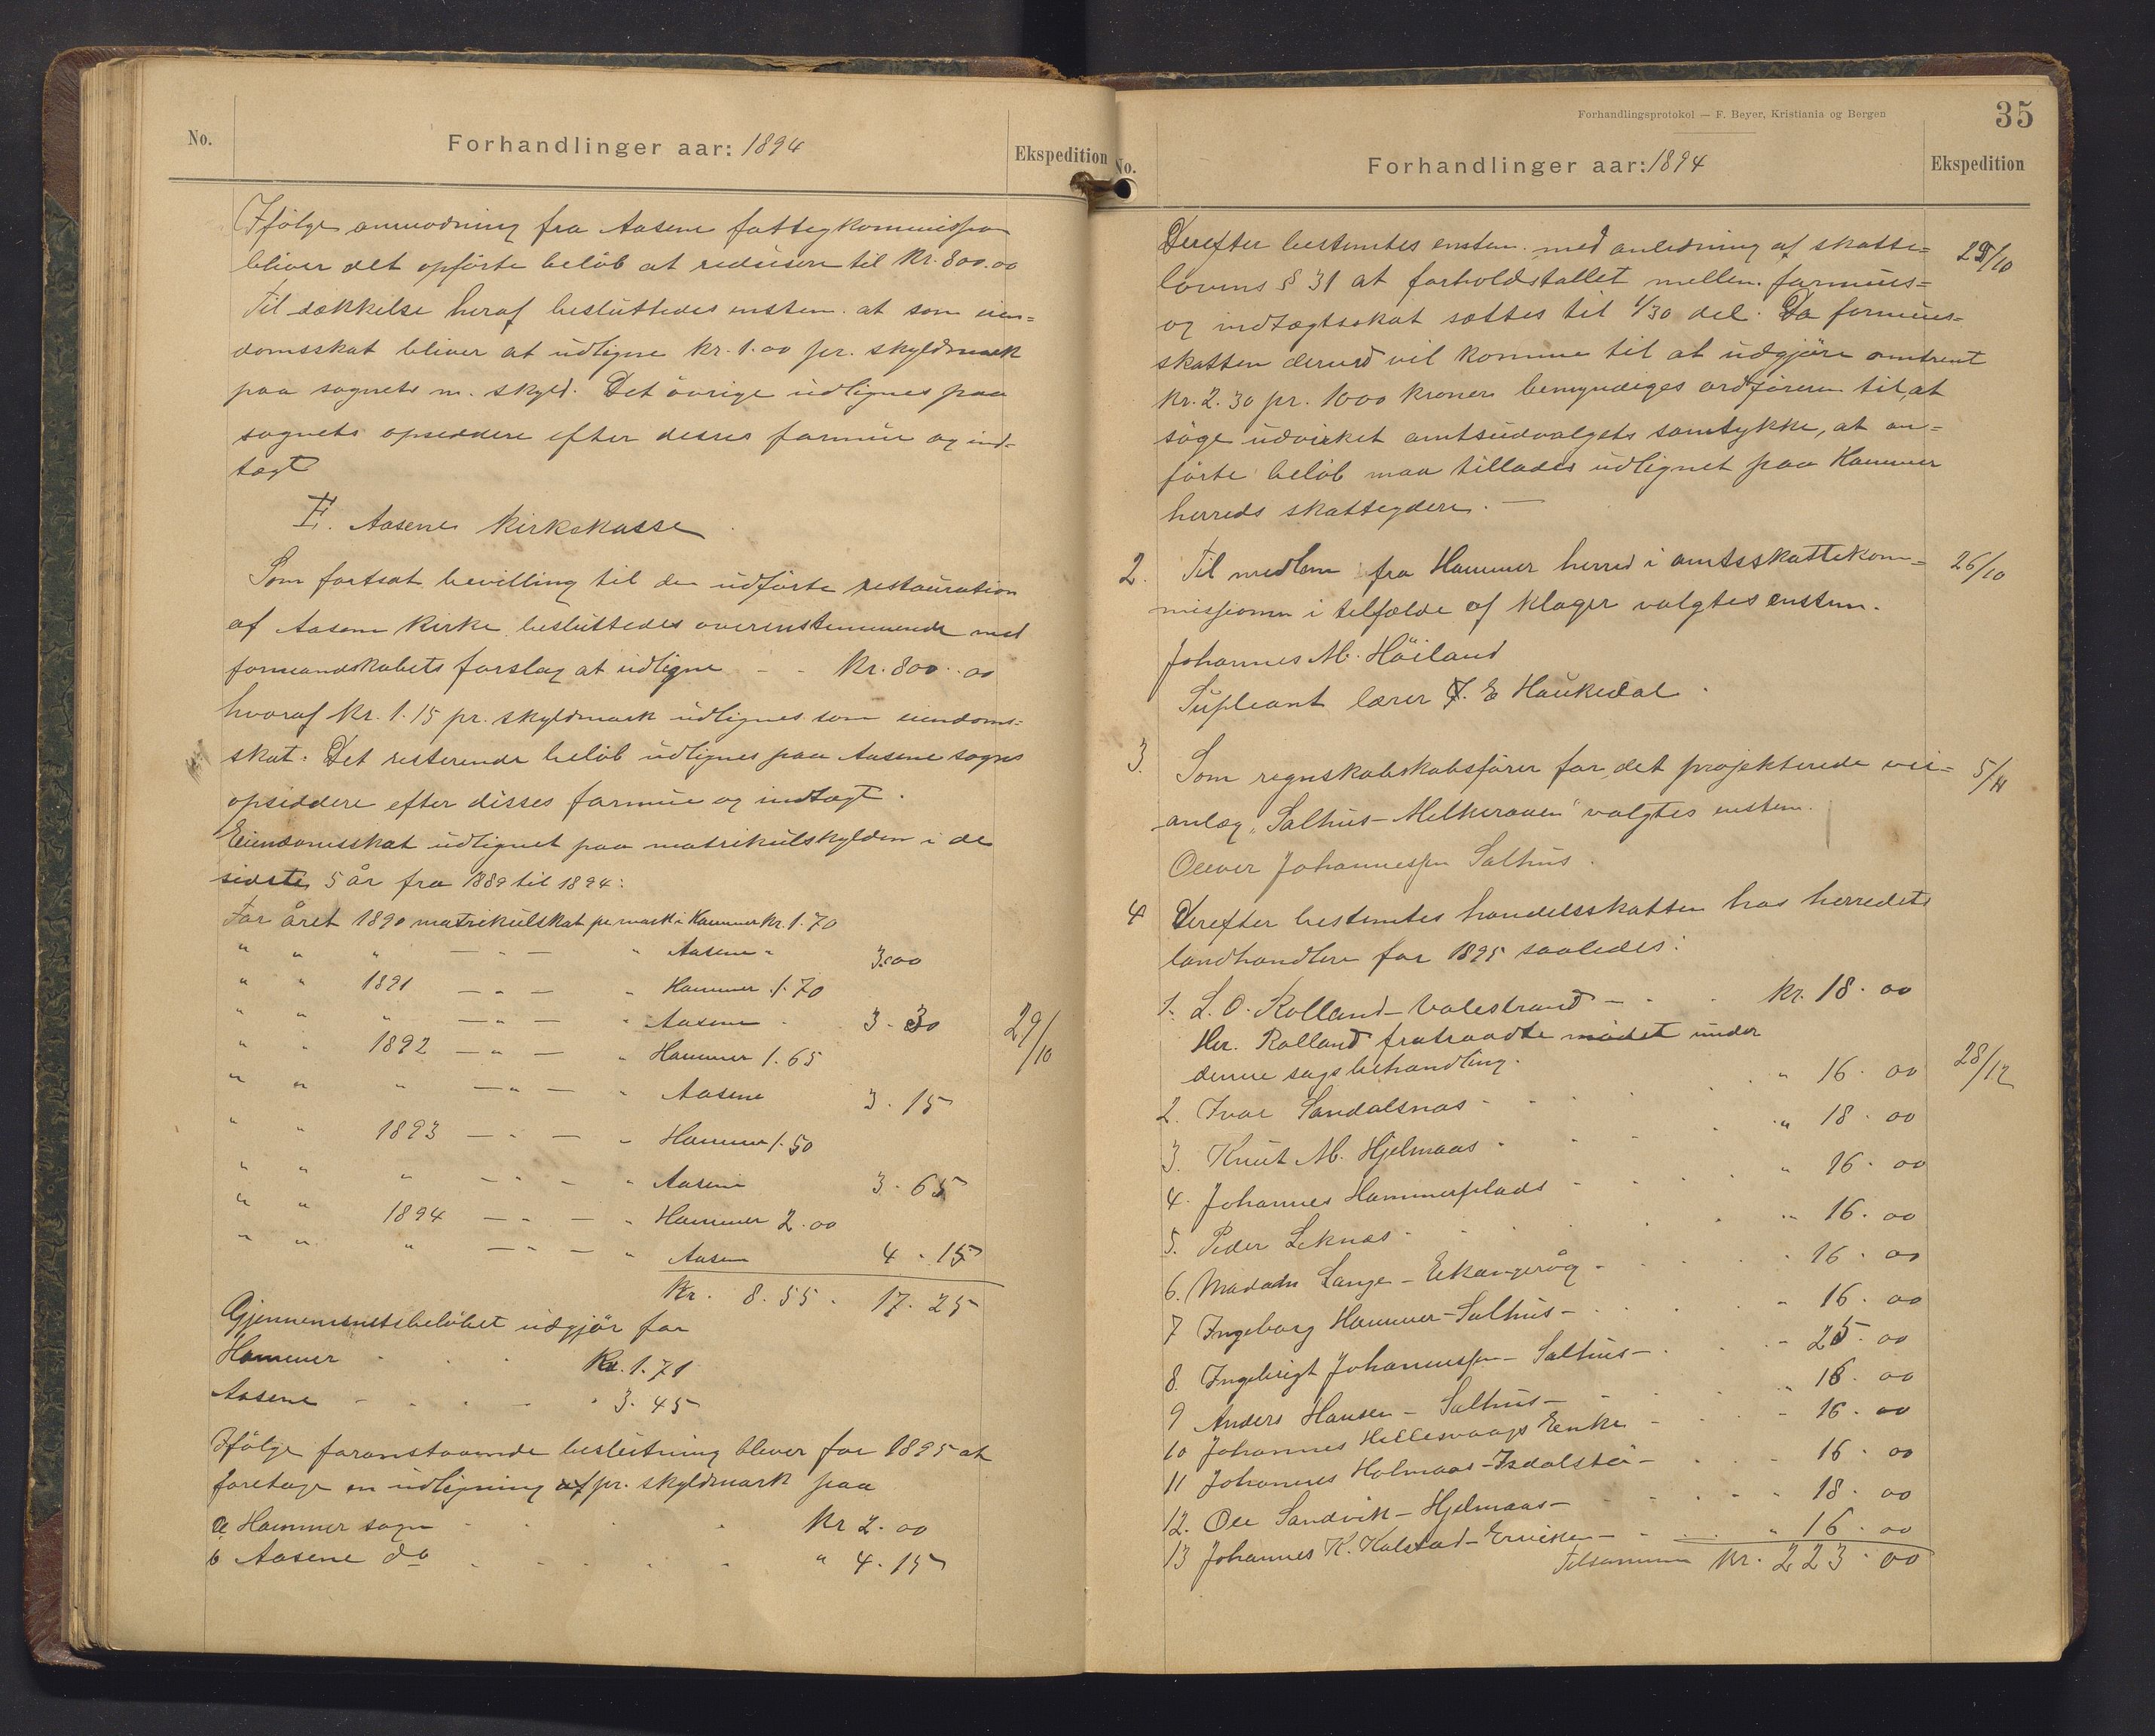 No.
Forhandlinger aar: 1894
Ekspedition
Ifölge anmodning fra Aasene fattigkommission
bliver det opförte belöb at redusere til Kr. 800.00
Til dækkelse heraf besluttedes enstem. at som eien=
domsskat bliver at udligne Kr. 1.00 pr. skyldmark
paa sognets m. skyld. Det övrige udlignes paa
sognets opsiddere efter deres formue og ind-
tægt
E. Aasene Kirkekasse
Som fortsat bevilling til den udförte restauration
af Aasene Kirke besluttedes overenstemmende med
formandskabets forslag at udligne - - Kr. 800.00
hvoraf Kr. 1.15 pr. skyldmark udlignes som eiendoms=
skat. Det resterende belöb udlignes paa Aasene sogns
opsiddere efter disses formue og indtægt.
Eiendomsskat udlignet paa matrikulskylden i de
sidste 5 år fra 1889 til 1894:
For året 1890 matrikulskat pr mark i Hammer Kr. 1.70
" " " — " — " Aasene " 3.00
" " 1891 — " — " Hammer 1.70
" " " — " — " Aasene 3.30
" " 1892 — " — " Hammer 1.65
29/10
" " " — " — " Aasene 3.15
" " 1893 — " — " Hammer 1.50
" " " — " — " Aasene 3.65
" " 1894 — " — " Hammer 2.00
" " " — " — " Aasen 4.15
Kr. 8.55 . 17.25
Gjennemsnitsbelöbet udgjör for
Hammer Kr. 1.71
Aasene " 3.45
Ifölge foranstaaende beslutning bliver for 1895 at
foretage en udligning af pr. skyldmark paa
a Hammer sogn Kr 2.00
b Aasene do " 4.15
Forhandlingsprotokol — F. Beyer, Kristiania og Bergen
35
No.
Forhandlinger aar: 1894
Ekspedition
Derefter bestemtes enstem. med anledning af skatte=
lovens § 31 at forholdstallet mellem formues=
og indtægtsskat sættes til 1/30 del. Da formues=
skatten derved vil komme til at udgjöre omtrent
Kr. 2.30 pr. 1000 Kroner bemyndiges ordföreren til, at
söge udvirket amtsudvalgets samtykke, at an=
förte belöb maa tillades udlignet paa Hammer
herreds skatteydere. —
2. Til medlem fra Hammer herred i amtsskattekom= 26/10
missionen i tilfælde af klager valgtes enstem.
Johannes M. Höiland
Supleant lærer J. E Haukedal
3. Som regnskabskabsförer for det projekterede vei= 5/11
anlæg "Salhus-Melkeraaen" valgtes enstem.
Oliver Johannessen Salhus.
4 Derefter bestemtes handelsskatten hos herredets
landhandlere for 1895 saaledes:
1. L. O. Rolland - Valestrand - Kr. 18.00
Hr. Rolland fratraadte mödet under
denne sags behandling.
28/12
2. Ivar Sandalsnæs " 16.00
3. Knut M. Hjelmaas " 18.00
4. Johannes Hammersplads " 16.00
5. Peder Leknæs " 16.00
6. Madam Lange - Eikangervåg " 16.00
7 Ingeborg Hammer - Salhus - " 16.00
8. Ingebrigt Johannessen - Salhus - " 25.00
9 Anders Hansen - Salhus - " 18.00
10 Johannes Hellesvaags Enke " 16.00
11 Johannes Holmaas - Isdalstö - " 16.00
12. Ole Sandvik - Hjelmaas - " 18.00
13 Johannes K. Kalstad - Erviken - " 16.00
Tilsammen Kr. 223.00